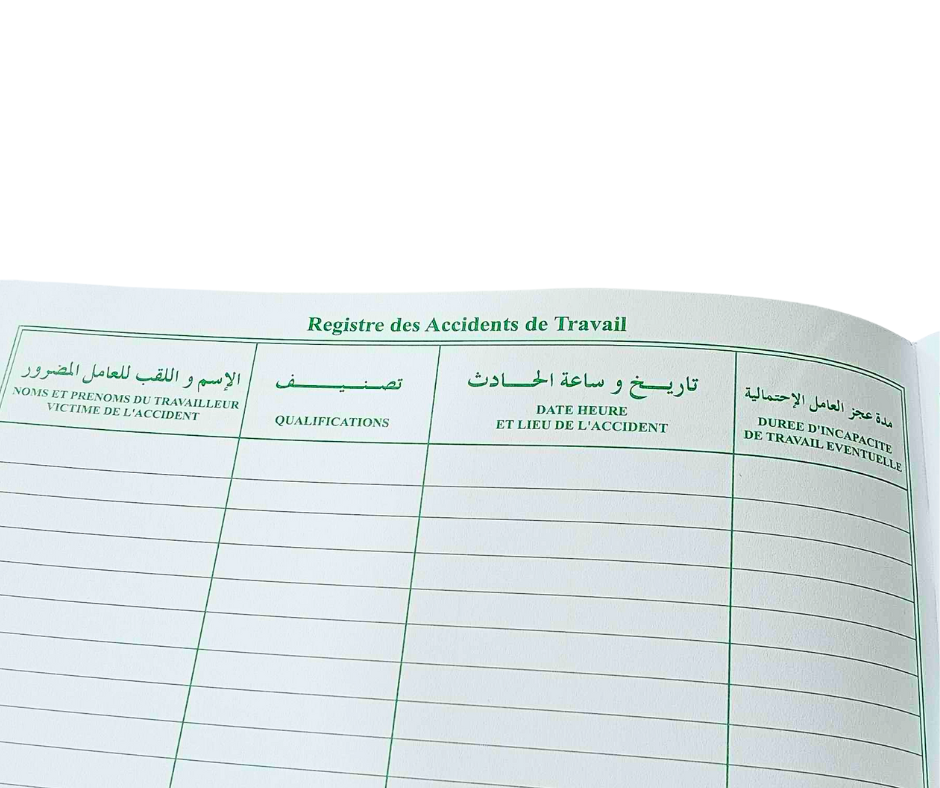 Registre des Accidents de Travail
الإسم و اللقب للعامل المضرور
NOMS ET PRENOMS DU TRAVAILLEUR
VICTIME DE L'ACCIDENT
تصنيف
QUALIFICATIONS
تاريخ و ساعة الحادث
DATE HEURE
ET LIEU DE L'ACCIDENT
مدة عجز العامل الإحتمالية
DUREE D'INCAPACITE
DE TRAVAIL EVENTUELLE